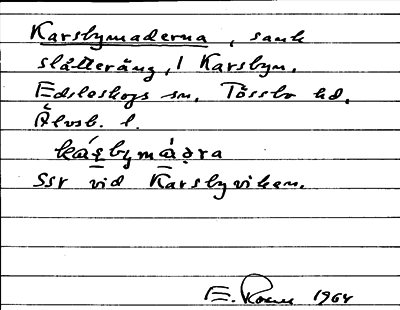 Karsbymaderna, sank
slåtteräng, i Karsbyn.
Edsleskogs sn. Tössbo hd.
Älvsb. l.
ka̱şbymàdra
SSV vid Karsbyviken.
E. 1964